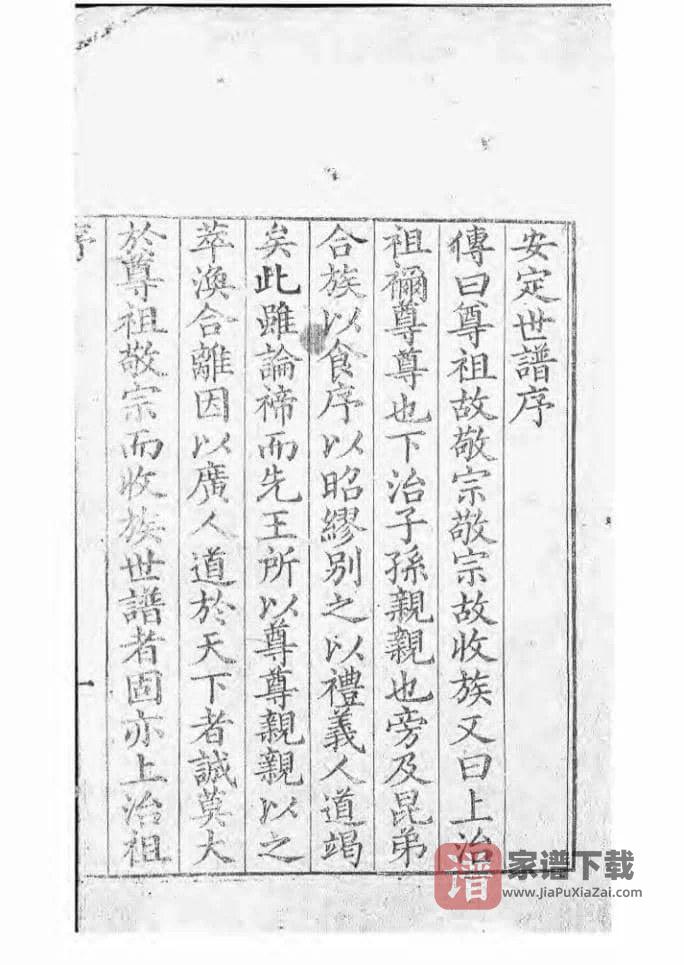 安定世譜序
傳曰尊祖故敬宗敬宗故收族又曰上治
祖禰尊尊也下治子孫親親也旁及昆弟
合族以食序以昭繆別之以禮義人道竭
矣此雖論禘而先王所以尊尊親親以之
萃渙合離因以廣人道於天下者誠莫大
於尊祖敬宗而收族世譜者固亦上治祖
序
一
谱
家谱下载
www.jiaPuXiaZai.com